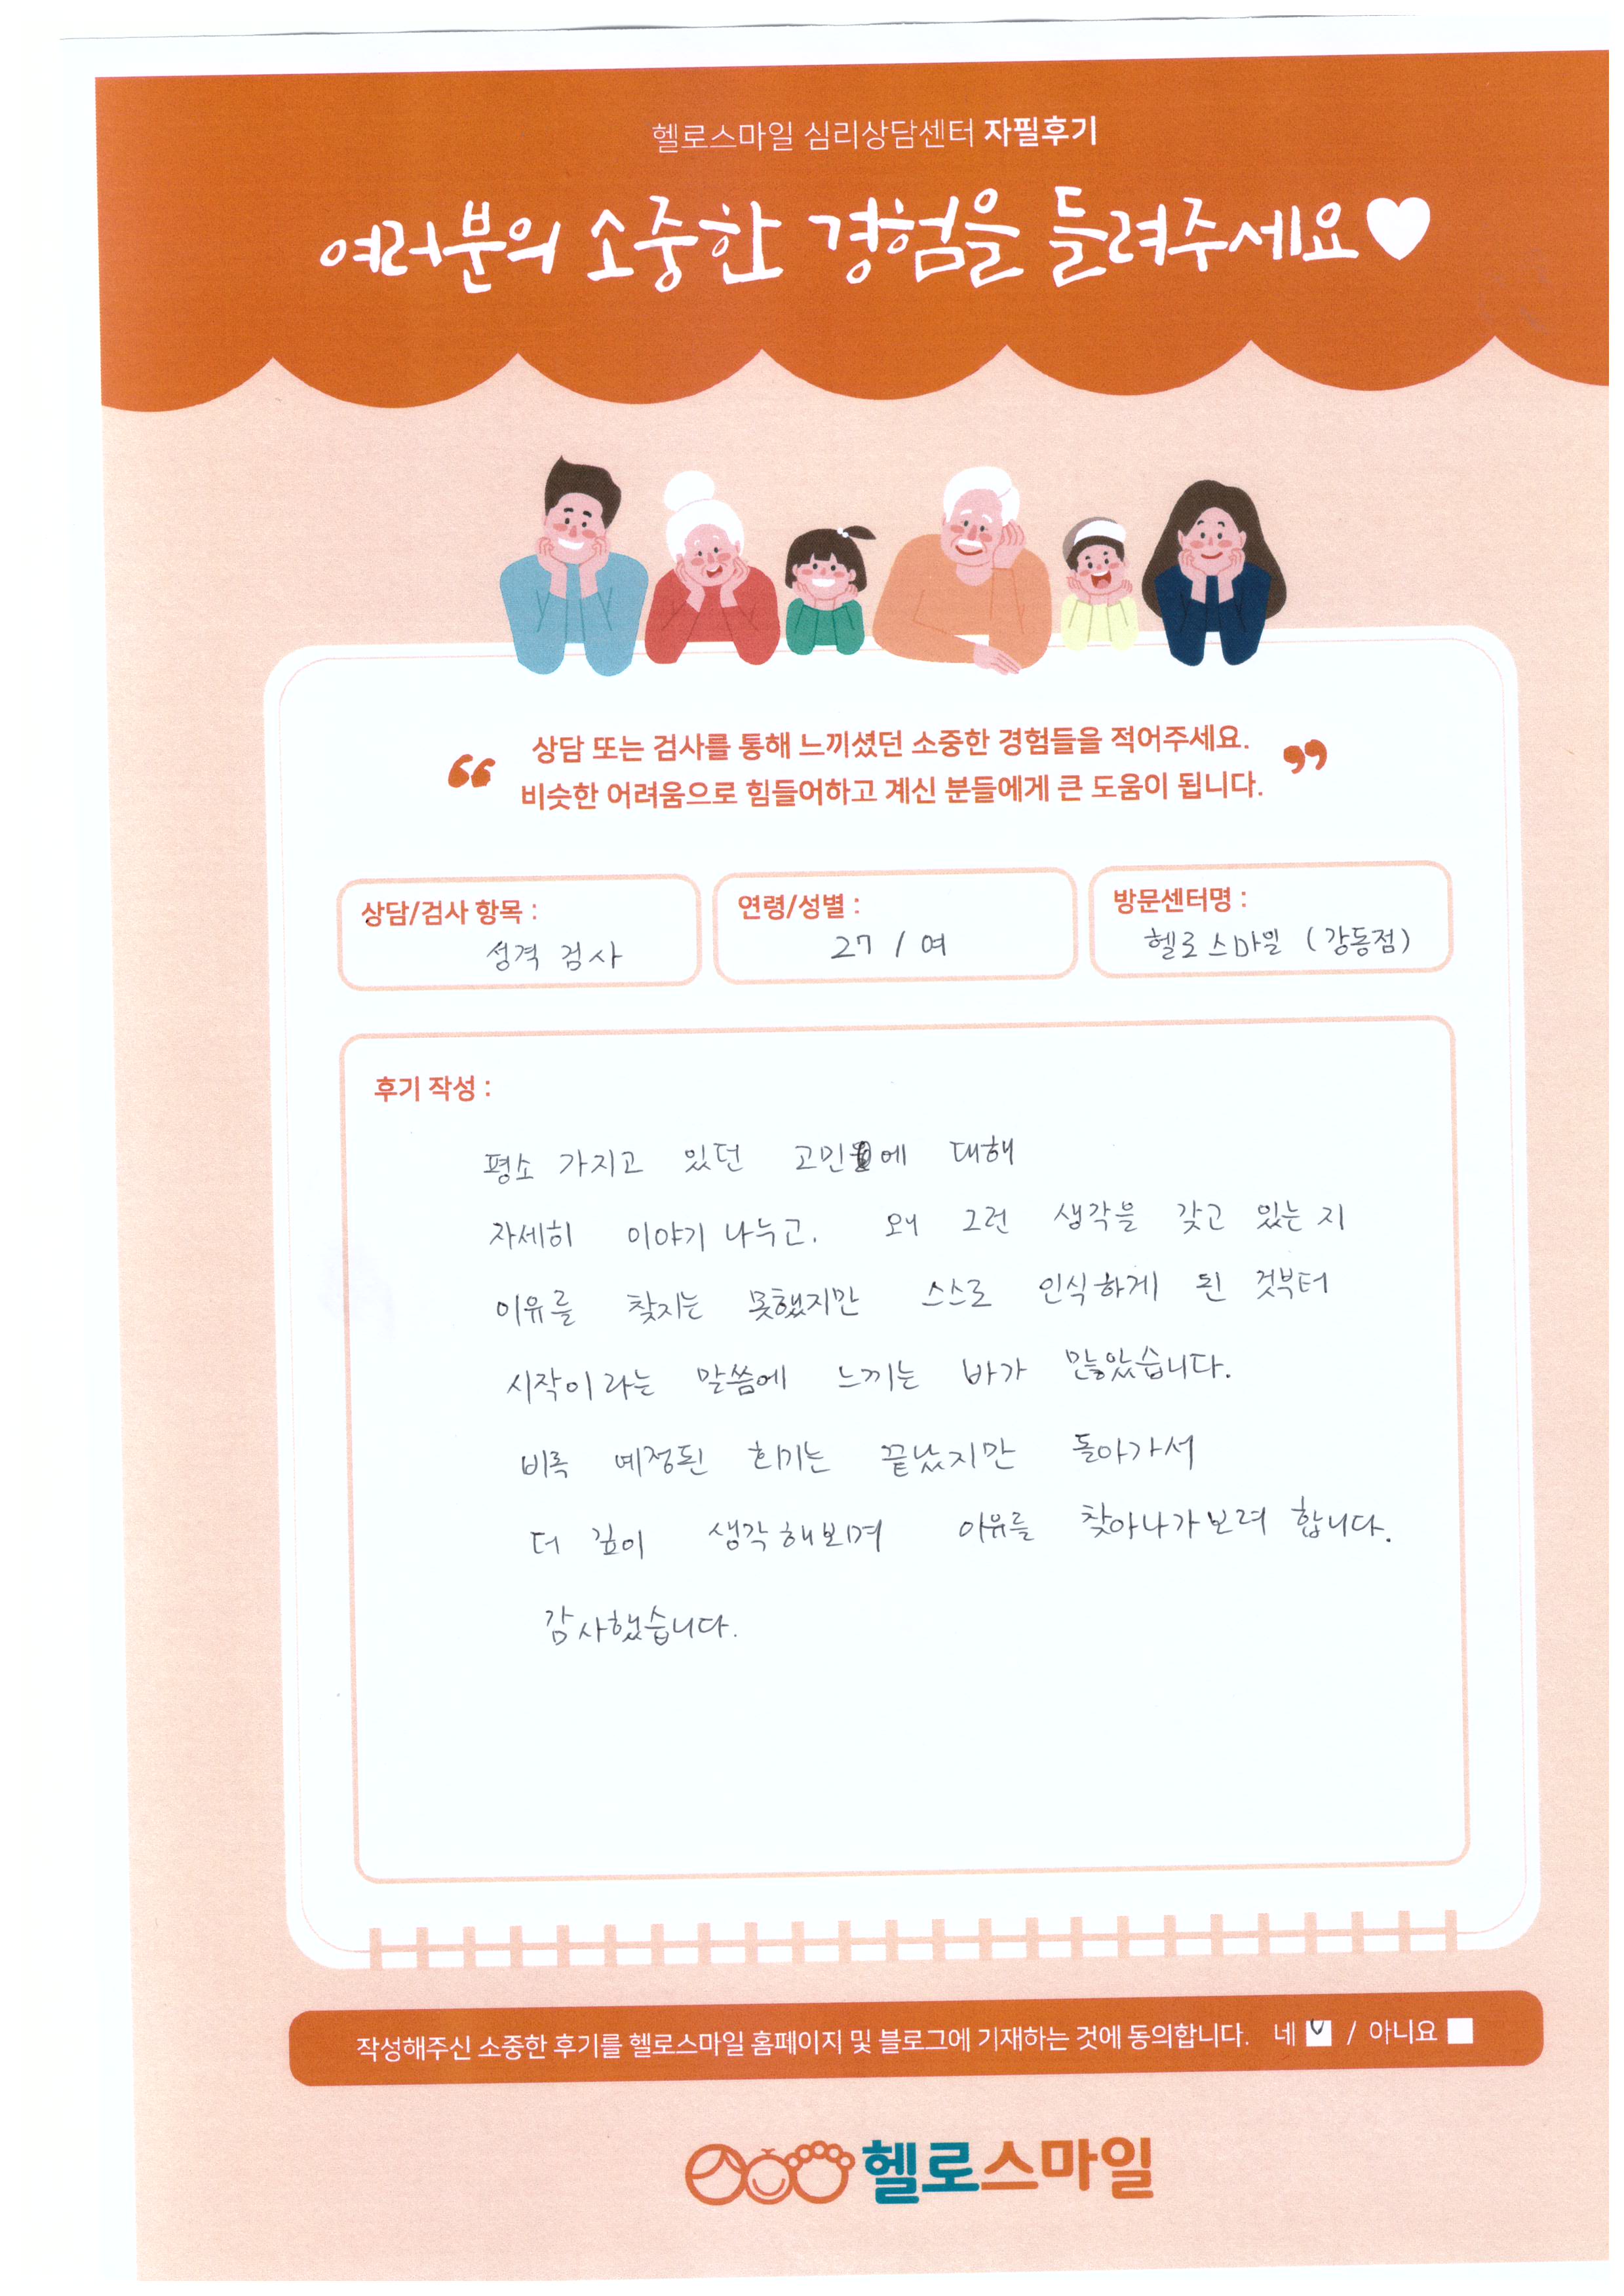 헬로스마일 심리상담센터 자필후기
여러분의 소중한 경험을 들려주세요
상담 또는 검사를 통해 느끼셨던 소중한 경험들을 적어주세요.
비슷한 어려움으로 힘들어하고 계신 분들에게 큰 도움이 됩니다.
상담/검사 항목 :
성격 검사
연령/성별 :
27 / 여
방문센터명 :
헬로스마일 (강동점)
후기 작성 :
평소 가지고 있던 고민에 대해
자세히 이야기 나누고. 왜 그런 생각을 갖고 있는지
이유를 찾지는 못했지만 스스로 인식하게 된 것부터
시작이라는 말씀에 느끼는 바가 많았습니다.
비록 예정된 회기는 끝났지만 돌아가서
더 깊이 생각해보며 이유를 찾아나가보려 합니다.
감사했습니다.
작성해주신 소중한 후기를 헬로스마일 홈페이지 및 블로그에 기재하는 것에 동의합니다. 네 / 아니요
헬로스마일